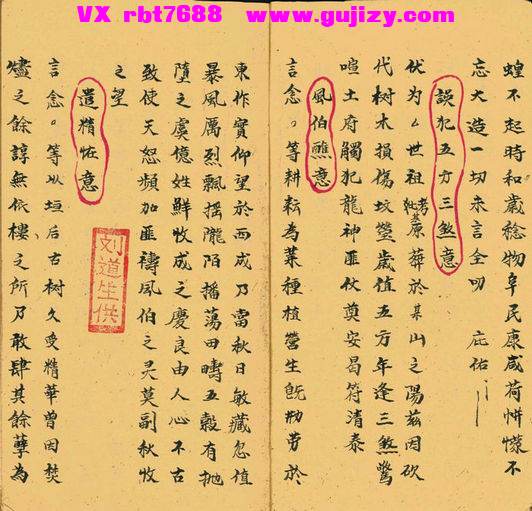 VX rbt7688 www.gujizy.com
蝗不起時和歲稔物阜民康咸荷帡幪不
忘大造一切未言全叨 庇佑
誤犯五方三煞意
伏为厶世祖考妣某原葬於某山之陽兹因砍
代树木損傷坟塋歲值五方年逢三煞驚
喧土府觸犯龍神匪仗奠安曷符清泰
風伯醮意
言念。等耕耘為業種植營生既劳於
東作實仰望於西成乃當秋日敏藏忽值
暴風厲烈飄摇隴陌播荡田疇五穀有抛
墮之虞億姓鮮收成之慶良由人心不古
致使天怒頻加匪禱風伯之灵莫副秋收
之望
遣精怪意
刘道生供
言念。等以垣后古树久受精華曾因焚
燼之餘諄無依棲之所乃敢肆其餘孽為